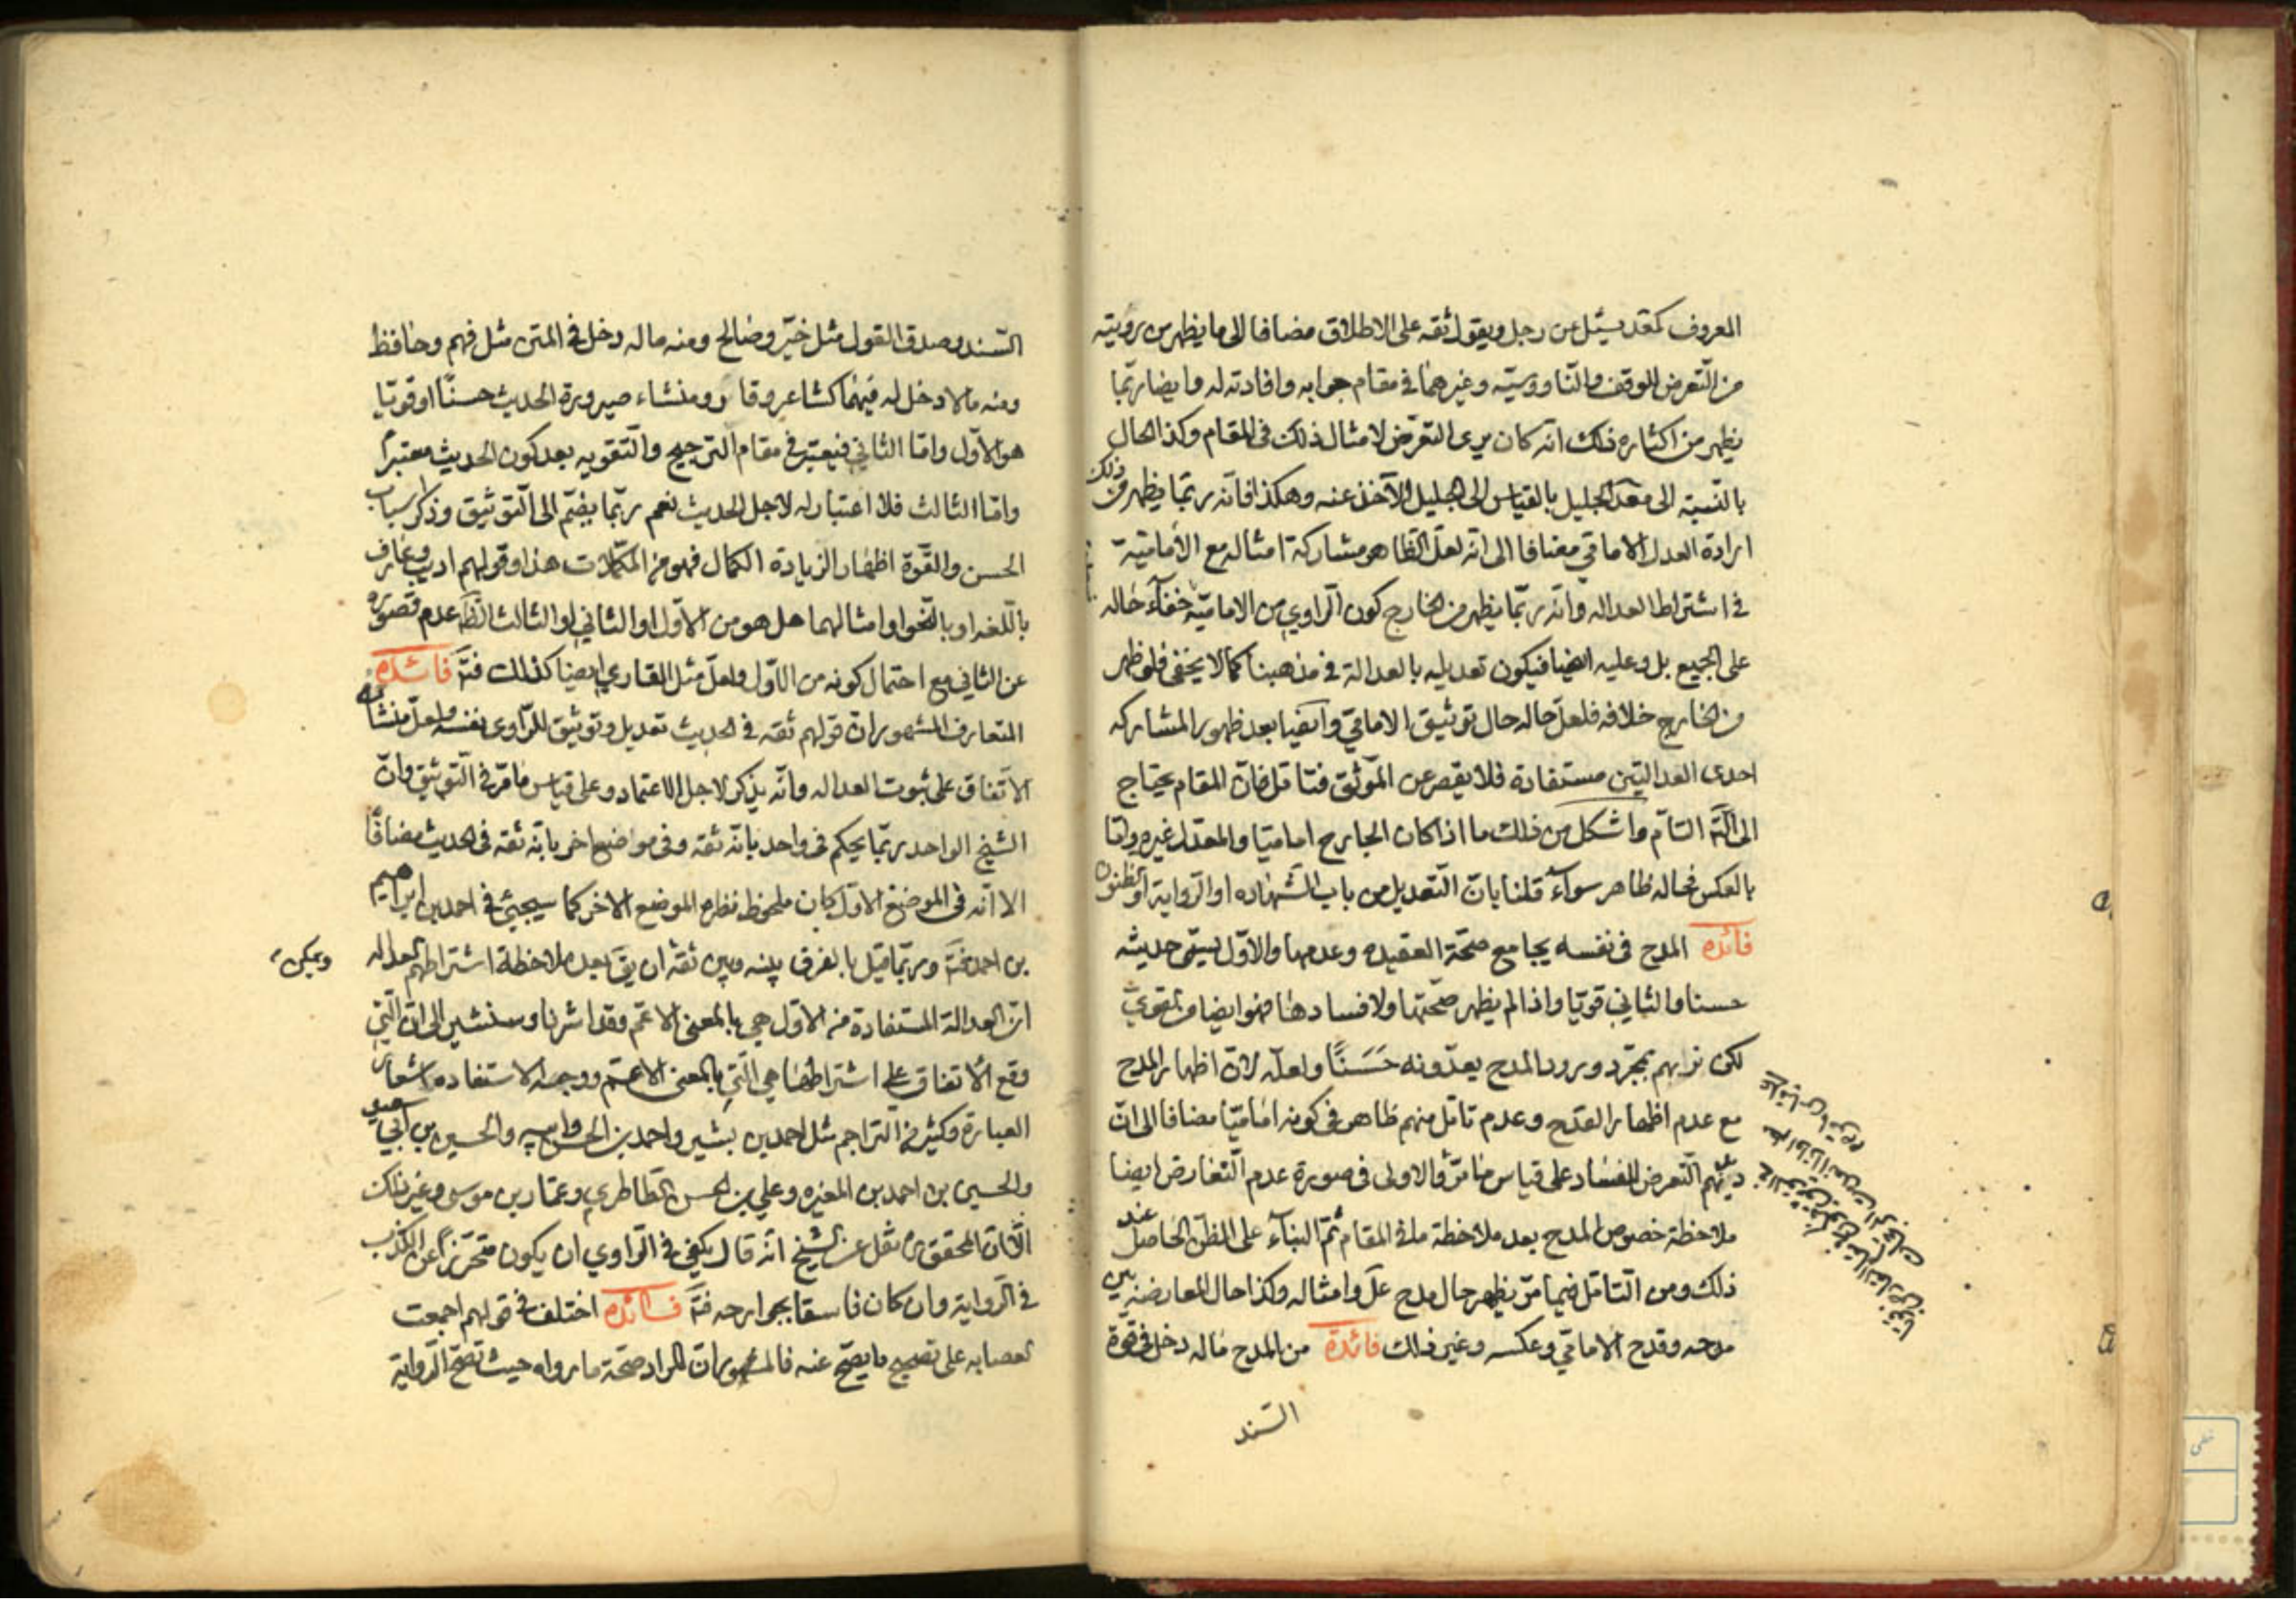 المعروف كمعدل يسئل عن رجل ويقول ثقه على الاطلاق مضافا الى ما يظهر من رويته
من التعرض للوقف والناووسيّه وغيرهما فى مقام جوابه وافادته له وايضا ربّما
يظهر من اكثاره ذلك انّه كان يرى التعرّض لامثال ذلك فى المقام وكذا الحال
بالنّسبته الى معدّل الجليل بالقياس الى الجليل الآخذ عنه وهكذا فانّه ربّما يظهر من ذلك
ارادة العدل الامامّي مضافا الى انّه لعلّ الظاهر مشاركة امثاله مع الاماميّة
فى اشتراط العداله وانّه ربّما يظهر من الخارج كون الرّاوي من الاماميّة خفآء حاله
على الجميع بل وعليه ايضا فيكون تعديله بالعدالة فى مذهبنا كما لا يخفى فلو ظهر
من الخارج خلافه فلعلّ حاله حال توثيق الامامّي وايضا بعد ظهور المشاركه
احدى العدالتين مستفادة فلا يقصر عن الموثّق فتامّل فانّ المقام يحتاج
الى التّامّل التّامّ واشكل من ذلك ما اذا كان الجارح اماميّا والمعدّل غيره وامّا
بالعكس فحاله ظاهر سوآء قلنا بانّ التّعديل من باب الشّهاده او الرّوايته او الظنون
فائده المدح فى نفسه يجامع صحّة العقيده وعدمها والاوّل يسمّى حديثه
حسنا والثاني قويّا واذا لم يظهر صحّتها ولا فسادها فهو ايضا من القوىّ
لكن نراهم بمجرّد ورود المدح يعدّونه حَسَنًا ولعلّه لانّ اظهار المدح
مع عدم اظهار القدح وعدم تامّل منهم ظاهر فى كونه اماميّا مضافا الى انّ
ديدنهم التّعرض للفساد على قياس ما مرّ والاولى فى صورة عدم التّعارض ايضا
ملاحظة خصوص المدح بعد ملاحظة ما فى المقام ثمّ البنآء على الظنّ الحاصل عند
ذلك ومن التّامّل فيما مرّ يظهر حال مدح علّ وامثاله وكذا حال المعارضه بين
مدحه وقدح الامامّي وعكسه وغير ذلك فائدة من المدح ماله دخل فى قوّة
السّند
السّند وصدق القول مثل خيّر وصالح ومنه ماله دخل فى المتن مثل فهم وحافظ
ومنه ما لا دخل له فيهما كشاعر وقار ومنشاء صيرورة الحديث حسنًا او قويّا
هو الاوّل وامّا الثاني فيعتبر فى مقام الترجيح والتّقويه بعد كون الحديث معتبرًا
وامّا الثالث فلا اعتبار له لاجل الحديث نعم ربّما يضمّ الى التّوثيق وذكر اسباب
الحسن والقوّة اظهار الزيادة الكمال فهو من المكمّلات هذا وقولهم اديب وعارف
باللّغه او بالنّحو وامثالهما هل هو من الاوّل او الثاني او الثالث الظّ عدم قصوره
عن الثاني مع احتمال كونه من الاوّل ولعلّ مثل القارى ايضا كذلك فتّ فائده
المتعارف المشهور انّ قولهم ثقه فى الحديث تعديل وتوثيق للرّاوى نفسه ولعلّ منشأه
الاتّفاق على ثبوت العداله وانّه يذكر لاجل الاعتماد وعلى قياس ما مرّ فى التّوثيق وانّ
الشيخ الواحد ربّما يحكم فى واحد بانّه ثقه وفى مواضع اخر بانّه ثقه فى الحديث مضافًا
الا انّه فى الموضع الاوّل كان ملحوظ نظره الموضع الاخر كما سيجئ فى احمد بن ابراهيم
بن احمد فتّ وربّما قيل بالفرق بينه وبين ثقه ان يقّ بعد ملاحظة اشتراطهم العداله
ويمكن
انّ العدالة المستفادة من الاوّل هي بالمعنى الاعم وقد اشرنا وسنشير الى انّ الّتي
وقع الاتفاق على اشتراطها هى الّتي بالمعنى الاعم ووجه الاستفاده اشعار
العبارة وكثير من التراجم مثل احمد بن بشير واحمد بن الحسن وابيه والحسين بن ابى سعيد
والحسين بن احمد بن المغيره وعلي بن الحسن الطاطرى وعمّار بن موسى وغير ذلك
الّا انّ المحقق ره نقل عن الشيخ انّه قال يكفى فى الرّاوي ان يكون متحرّزًا عن الكذب
فى الرّواية وان كان فاسقا بجوارحه فتّ فائده اختلف فى قولهم اجمعت
العصابه على تصحيح ما يصحّ عنه فالمشهور انّ المراد صحّة ما رواه حيث تصحّ الرّواية